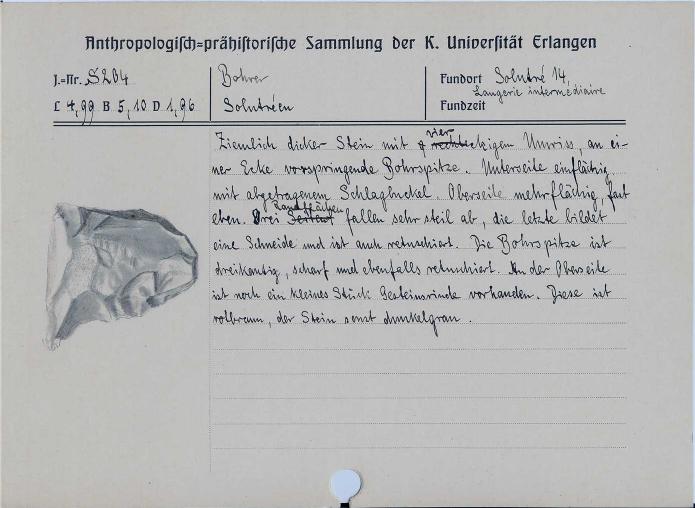 Anthropologisch=prähistorische Sammlung der K. Universität Erlangen
J.=Nr. S204
Bohrer
Fundort Solutré 14,
Laugerie intermédiaire
L 4,99 B 5,10 D 1,96
Solutréen
Fundzeit
Ziemlich dicker Stein mit viereckigem Umriss, an ei-
ner Ecke vorspringende Bohrspitze. Unterseite einflächig
mit abgetragenem Schlagbuckel. Oberseite mehrflächig, fast
eben. Drei Randflächen fallen sehr steil ab, die letzte bildet
eine Schneide und ist auch retuschiert. Die Bohrspitze ist
dreikantig, scharf und ebenfalls retuschiert. An der Oberseite
ist noch ein kleines Stück Gesteinsrinde vorhanden. Diese ist
rotbraun, der Stein sonst dunkelgrau.